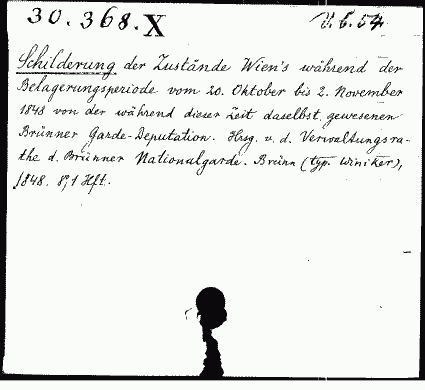 30.368.X V.b.54.
Schilderung der Zustände Wien's während der
Belagerungsperiode vom 20. Oktober bis 2. November
1848 von der während dieser Zeit daselbst gewesenen
Brünner Garde-Deputation. Hrsg. v. d. Verwaltungsra-
the d. Brünner Nationalgarde. Brünn (typ. Winiker),
1848. 8°, 1 Hft.